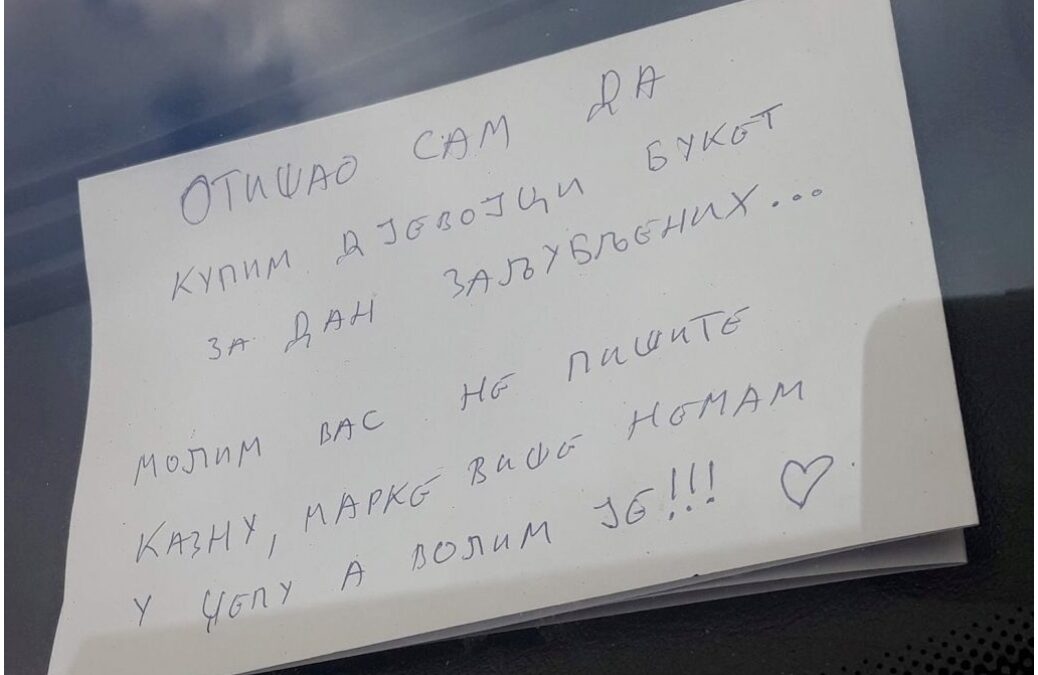 ОТИШАО САМ ДА
КУПИМ ДЈЕВОЈЦИ БУКЕТ
ЗА ДАН ЗАЉУБЉЕНИХ...
МОЛИМ ВАС НЕ ПИШИТЕ
КАЗНУ, МАРКЕ ВИШЕ НЕМАМ
У ЏЕПУ А ВОЛИМ ЈЕ!!! ♡